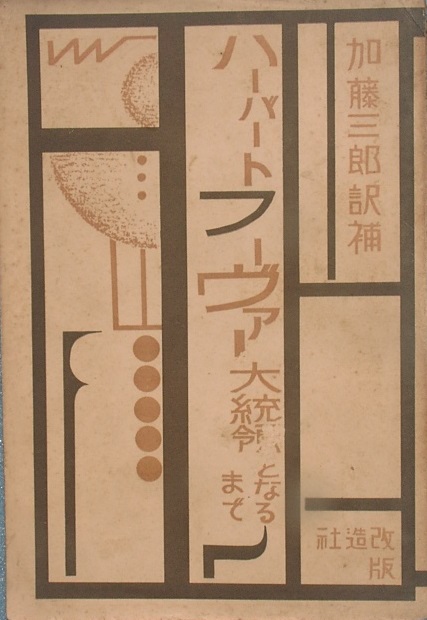 加藤三郎訳補
ハーバート
フーヴァー
大統領
となる
まで
改造社
版